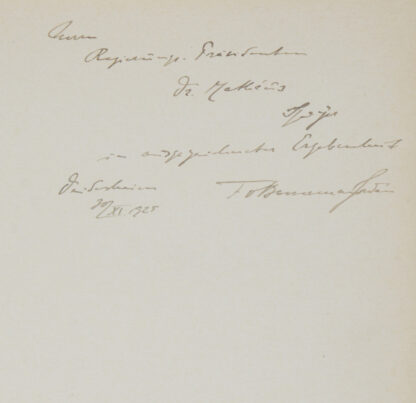 Herrn
Regierungs-Präsidenten
Dr. Mathéus
Speyer
in ausgezeichneter Ergebenheit
Deidesheim
F v Bassermann Jordan
20/XI 1925